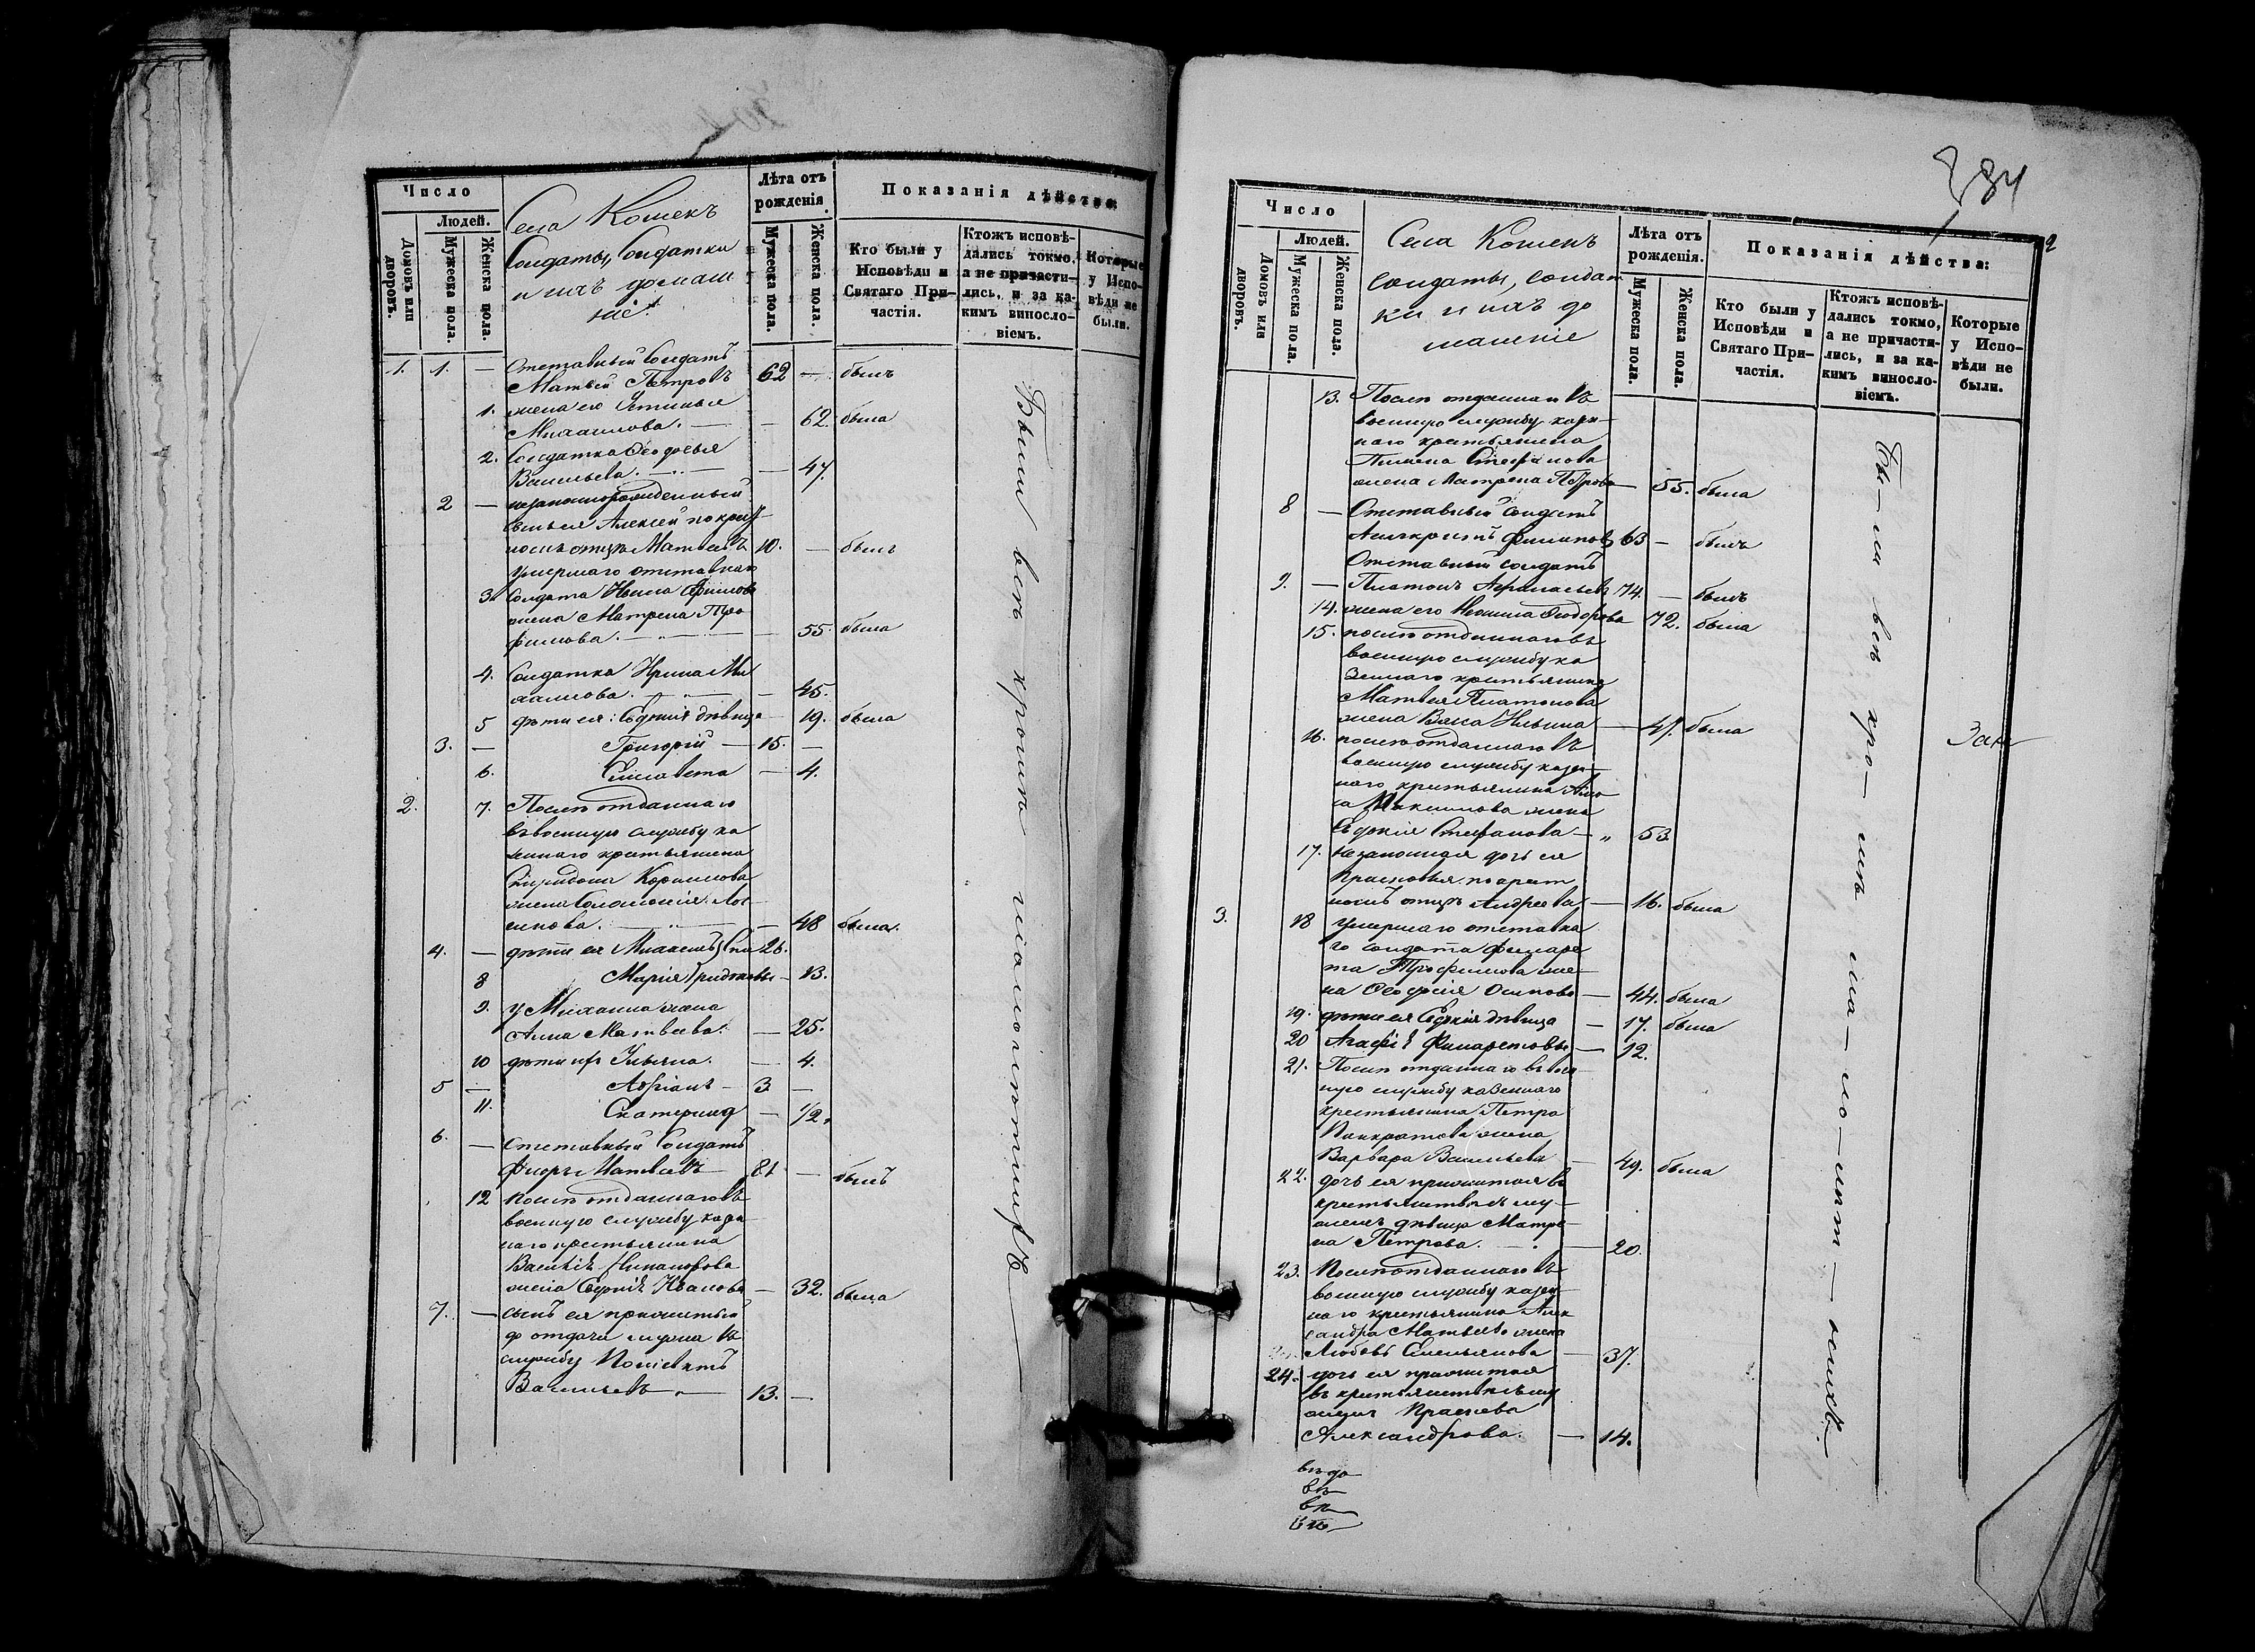 Число
Людей.
Домовъ или дворовъ.
Мужеска пола.
Женска пола.
Села Кошекъ
Солдаты, Солдатки
и ихъ домаш
ніе.
Лѣта отъ рожденія.
Мужеска пола.
Женска пола.
Показанія дѣйства:
Кто были у Исповѣди и Святаго Причастія.
Ктожъ исповѣдались токмо, а не причастились, и за какимъ винословіемъ.
Которые у Исповѣди не были.
1. 1. — Отставный Солдатъ
Матвѣй Петровъ 62 — былъ
1. жена его Устинья
Михаилова. — — 62. была
2. Солдатка Ѳеодосья
Васильева. — — 47.
2 — незаконнорожденный
сынъ ея Алексей по крест
номъ отцѣ Матвеевъ 10. — былъ
3. умершаго отставнаго
Солдата Ивана Ефимова
жена Матрена Тро
фимова. — — 55. была
4. Солдатка Ирина Ми
хаилова. — — 45.
5 дѣти ея: Евдокія дѣвица — 19. была
3. — Григорій — 15. —
6. Елисавета — 4.
2. 7. Послѣ отданнаго
въ военную службу ка
зеннаго крестьянина
Спиридона Корнилова
жена Соломонія Ло
гинова. — — 48 была.
4. — дѣти ея Михаилъ } Спи 26.
8 Марія } ридоновы — 13.
9. у Михаила жена
Анна Матвеева. — 25.
10 дѣти ихъ Ульяна. — 4.
5 — Адріанъ — 3 —
11. Екатерина — 1/2.
6. — Отставный Солдатъ
Флоръ Матвеевъ 81 — былъ
12 послѣ отданнаго въ
военную службу казен
наго крестьянина
Василія Никанорова
жена Евдокія Иванова — 32. была
7. — сынъ ея прижитый
до отдачи мужа въ
службу Поліевктъ
Васильевъ — 13. —
Были всѣ кромѣ малолѣтнихъ
284
2
Число
Людей.
Домовъ или дворовъ.
Мужеска пола.
Женска пола.
Села Кошекъ
солдаты, солдат
ки и ихъ до
машніе
Лѣта отъ рожденія.
Мужеска пола.
Женска пола.
Показанія дѣйства:
Кто были у Исповѣди и Святаго Причастія.
Ктожъ исповѣдались токмо, а не причастились, и за какимъ винословіемъ.
Которые у Исповѣди не были.
13. Послѣ отданнаго въ
военную службу казен
наго крестьянина
Пимена Стефанова
жена Матрена Петрова — 55. была
8 — Отставный солдатъ
Филиповъ 63 — былъ
Отставный солдатъ
9. — Платонъ Афанасьевъ 74. — былъ
14. жена его Неонила Ѳеодорова 72. была
15. послѣ отданнаго въ
военную службу ка
зеннаго крестьянина
Матвея Платонова
жена Васса Ильина — 47. была
16. послѣ отданнаго въ
военную службу казен
наго крестьянина
Максимова жена
Евдокія Стефанова — 53
17. незаконная дочь ея
Прасковья по крест
номъ отцѣ Андреева — 16. была
3. 18 умершаго отставна
го солдата Филаре
та Трофимова же
на Ѳеодосія Осипова — 44. была
19. дѣти ея Евдокія дѣвица — 17. была
20 Агафія Филаретовы — 12.
21. Послѣ отданнаго въ воен
ную службу казеннаго
крестьянина Петра
Панкратова жена
Варвара Васильева — 49. была
22. дочь ея прижитая въ
крестьянствѣ съ му
жемъ дѣвица Матре
на Петрова. — 20.
23. Послѣ отданнаго въ
военную службу казен
наго крестьянина Алек
сандра Матвеева жена
Любовь Емельянова — 37.
24. дочь ея прижитая
въ крестьянствѣ съ му
жемъ Прасковья
Александрова. — 14.
Бы—ли всѣ кро—мѣ ма—ло—лѣт—нихъ